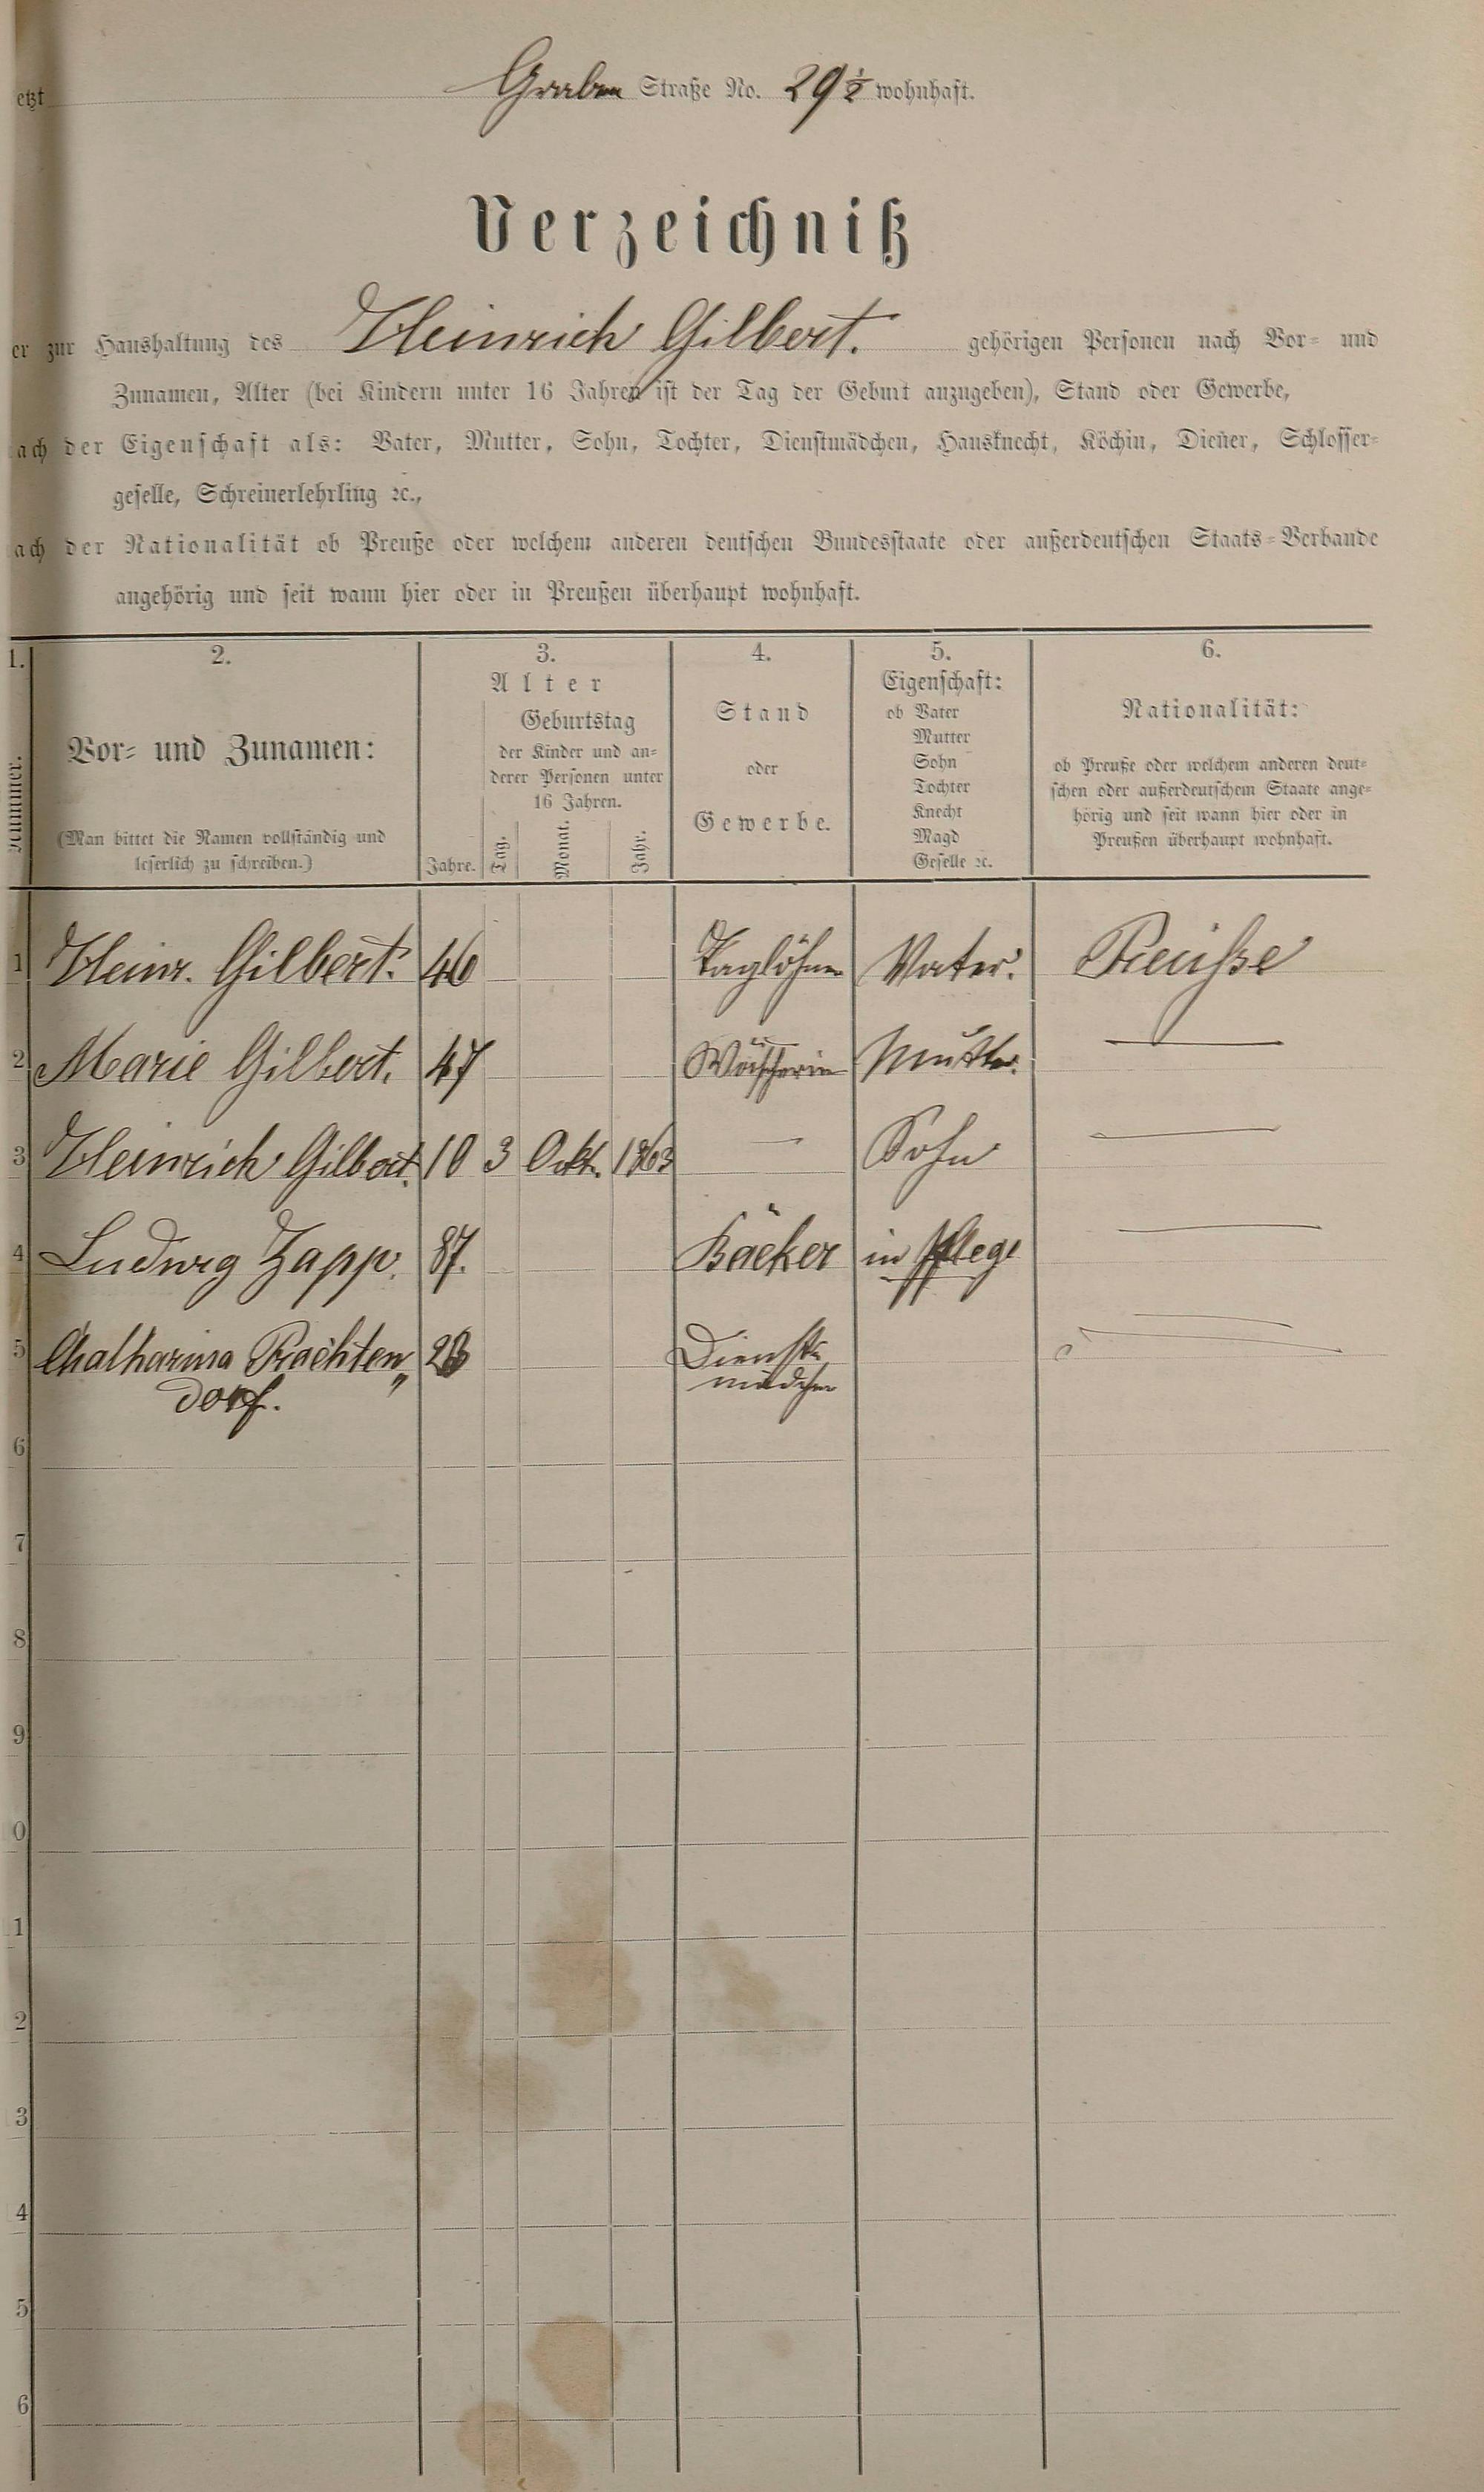 etzt Graben Straße No. 29 ½ wohnhaft.
Verzeichniß
er zur Haushaltung des Heinrich Gilbert. gehörigen Personen nach Vor= und
Zunamen, Alter (bei Kindern unter 16 Jahren ist der Tag der Geburt anzugeben), Stand oder Gewerbe,
ach der Eigenschaft als: Vater, Mutter, Sohn, Tochter, Dienstmädchen, Hausknecht, Köchin, Diener, Schlosser=
geselle, Schreinerlehrling ꝛc.,
ach der Nationalität ob Preuße oder welchem anderen deutschen Bundesstaate oder außerdeutschen Staats=Verbande
angehörig und seit wann hier oder in Preußen überhaupt wohnhaft.
1. 2. 3. 4. 5. 6.
Nummer.
Vor= und Zunamen:
(Man bittet die Namen vollständig und
leserlich zu schreiben.)
Alter
Jahre.
Geburtstag
der Kinder und an=
derer Personen unter
16 Jahren.
Tag. Monat. Jahr.
Stand
oder
Gewerbe.
Eigenschaft:
ob Vater
Mutter
Sohn
Tochter
Knecht
Magd
Geselle ꝛc.
Nationalität:
ob Preuße oder welchem anderen deut=
schen oder außerdeutschem Staate ange=
hörig und seit wann hier oder in
Preußen überhaupt wohnhaft.
1 Heinr. Gilbert. 46 Taglöhner Vater. Preuße
2 Marie Gilbert. 47 Wäscherin Mutter. —
3 Heinrich Gilbert. 10 3 Okt. 1863 — Sohn —
4 Ludwig Zapp. 87. Bäcker in Pflege —
5 Chatharina Rachten„ Dienst=
dorf. mädchen
6
7
8
9
0
1
2
3
4
5
6